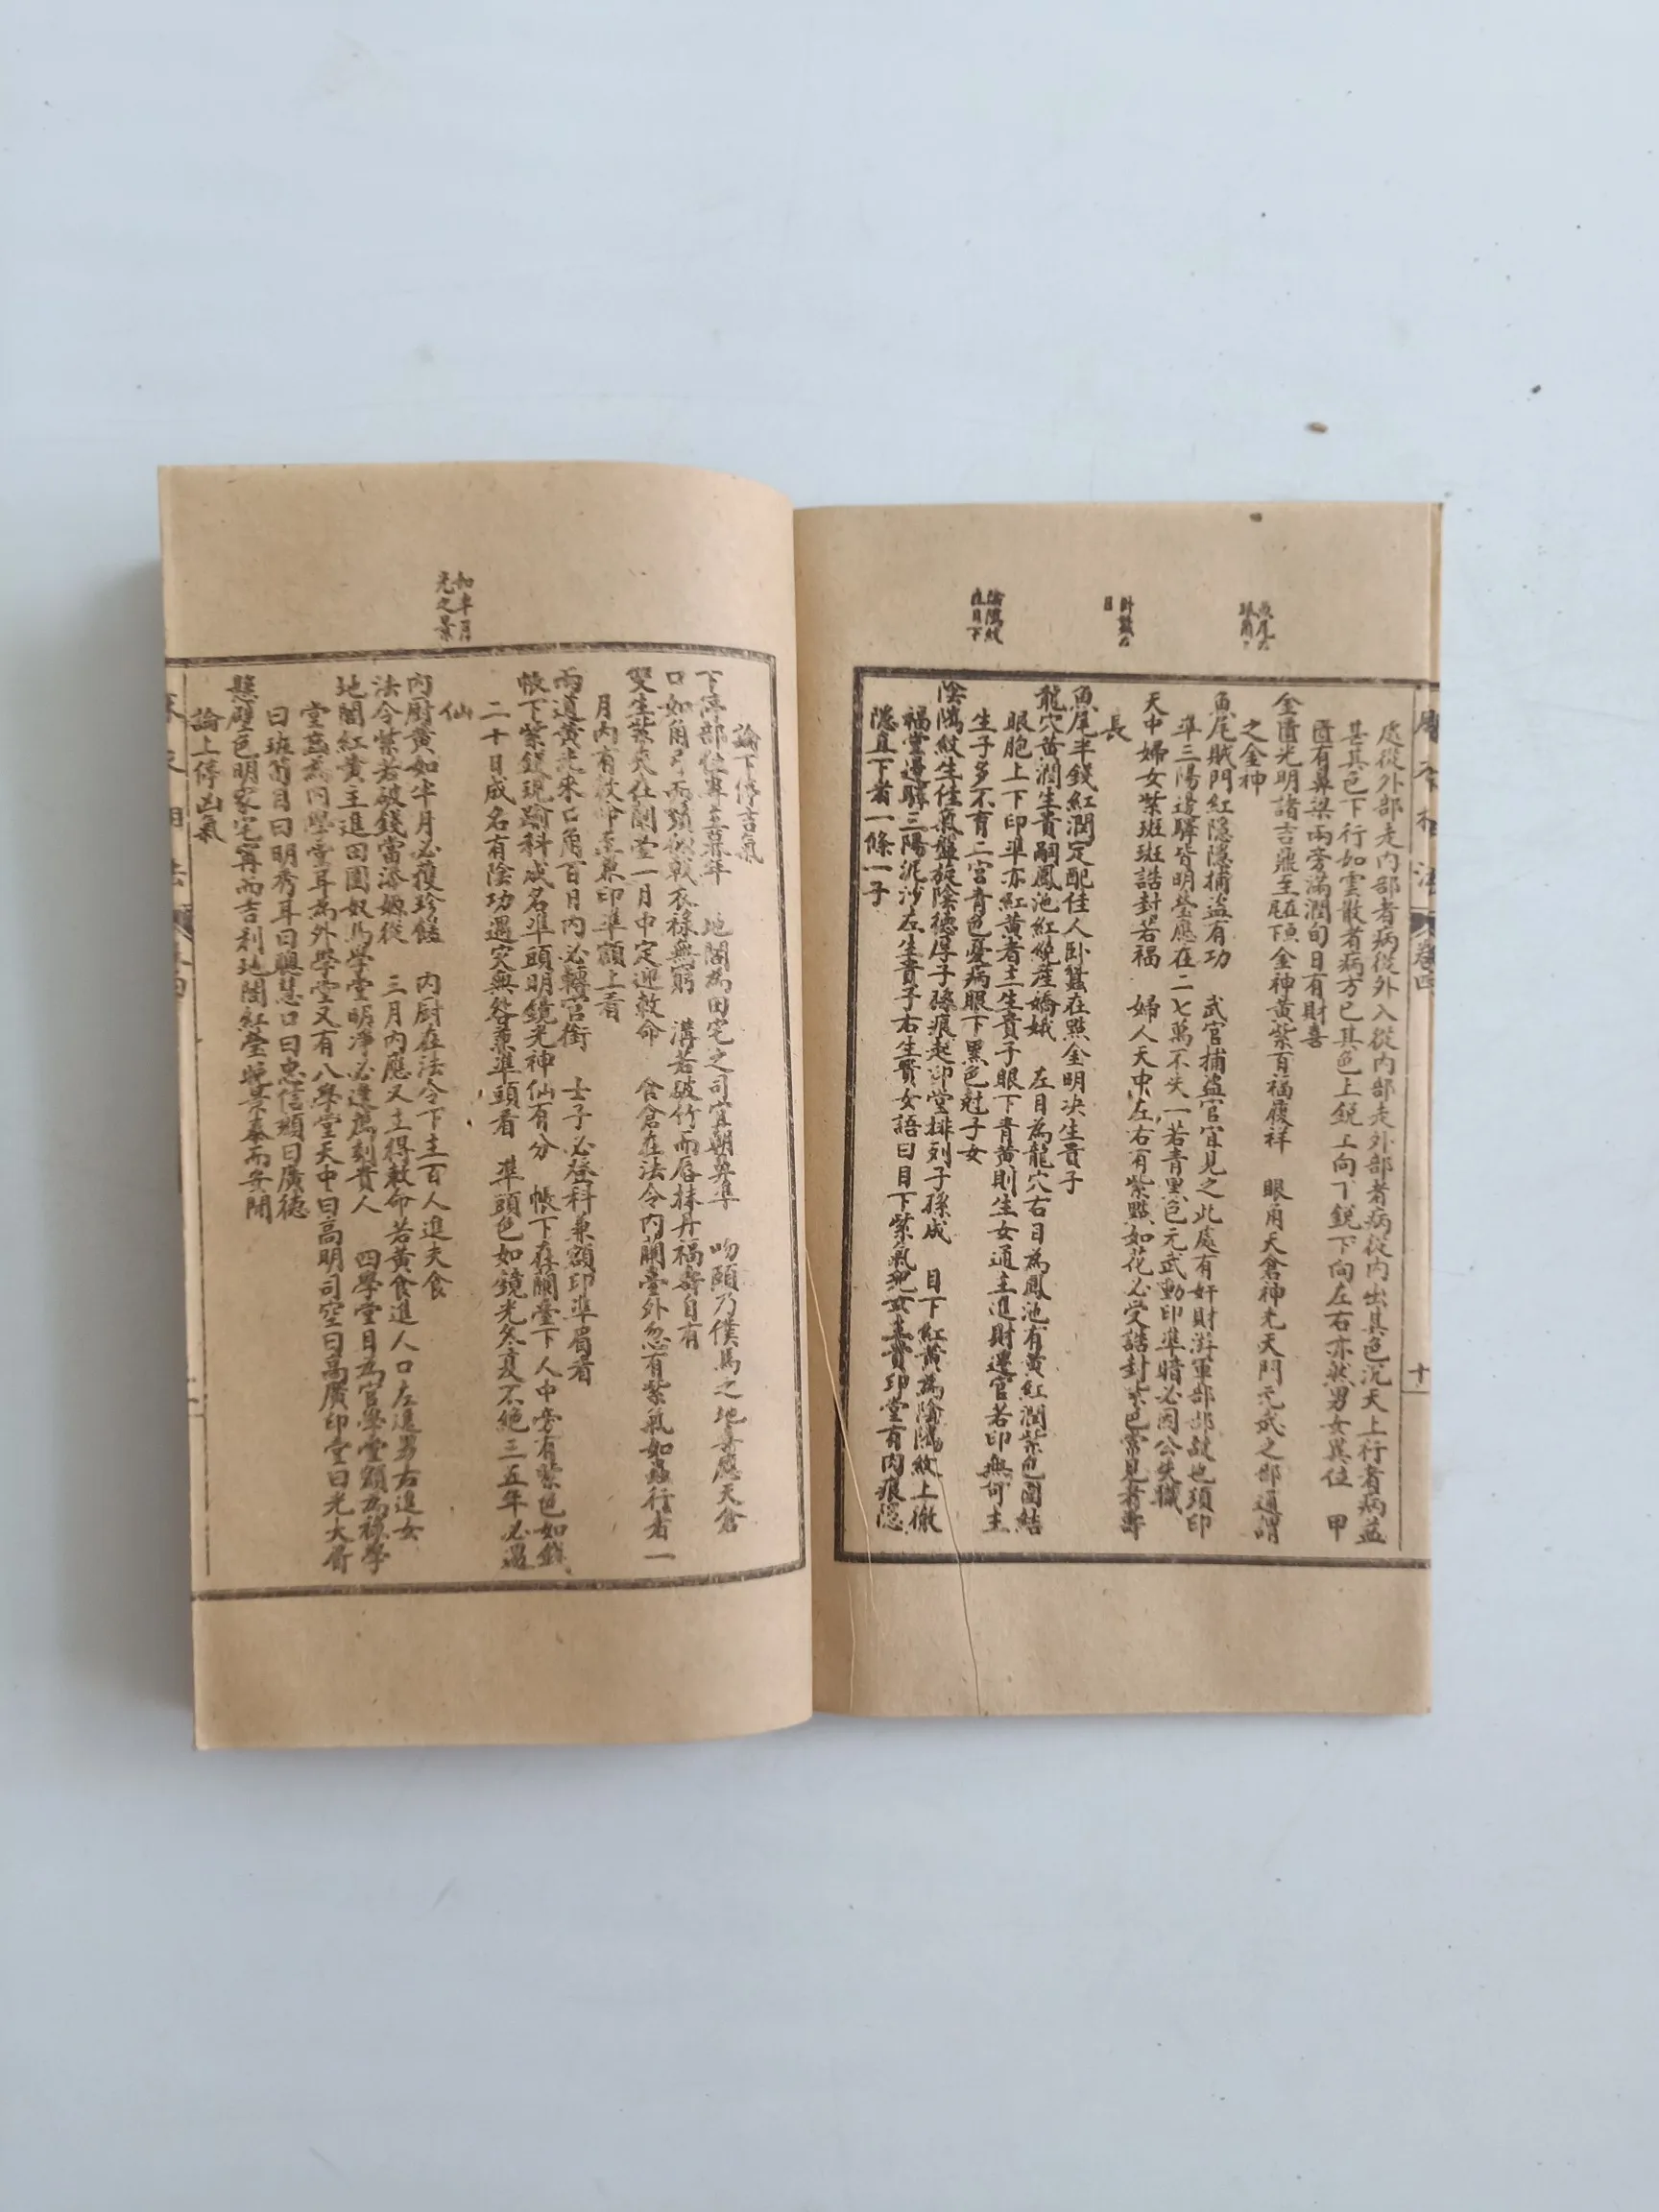 處從外部走內部者病從外入從內部走外部者病從內出其色沉天上行者病益
甚其色下行如雲散者病方已其色上鋭上向下鋭下向左右亦然男女異位　甲
匱有鼻梁兩旁滿潤旬日有財喜
金匱光明諸吉鼎至
金神黃紫百福履祥　眼角天倉神光天門元武之部通謂
之金神
魚尾賊門紅隱隱捕盜有功　武官捕盜官宜見之此處有奸財遊軍部部故也須印
準三陽邊驛皆明瑩應在二七萬不失一若青黑色元武動印準暗必因公失職
天中婦女紫班班誥封若福　婦人天中左右有紫點如花必受誥封紫色常見者壽
長
魚尾半錢紅潤定配佳人卧蠶在㸃金明决生貴子
龍穴黃潤生貴嗣鳳池紅繞産嬌娥　左目為龍穴右目為鳳池有黃紅潤紫色圓結
眼胞上下印準亦紅黃者主生貴子眼下青黄則生女通主進財遷官若印無何主
生子多不育二宮青色憂病眼下黑色尅子女
陰隲紋生佳氣盤旋陰德厚子孫痕起印堂排列子孫成　目下紅黃為陰隲紋上徹
福堂邊驛三陽泥沙左生貴子右生賢女語曰目下紫氣
印堂有肉痕隱
隱直下者一條一子
陰隲紋
在目下
論下停吉氣
下停部位專主暮年　地閣為田宅之司宜朝鼻準　吻頤乃僕馬之地喜應天倉
口如角弓而類似戟衣祿無窮　溝若破竹而唇抹丹福壽自有
雙生紫氣仕蘭堂一月中定迎敕命　食倉在法令內蘭臺外忽有紫氣如蟲行者一
月內有敕命至兼印準額上看
兩道黃光來口角百日內必轉官銜　士子必登科兼額印準眉看
帳下紫錢現踰科成名準頭明鏡光神仙有分　帳下在蘭臺下人中旁有紫色如錢
二十日成名有陰功遇灾無咎兼準頭看　準頭色如鏡光冬夏不絕三五年必遇
仙
內厨黃如半月必獲珍饈　內厨在法令下主百人進夫食
法令紫若破錢當添婢從　三月內應又主得敕命若黃食進人口左進男右進女
地閣紅黃主進田園奴馬學堂明淨必達鴈剡貴人　四學堂目為官學堂額為祿學
堂齒為內學堂耳為外學堂又有八學堂天中曰高明司空曰高廣印堂曰光大眉
曰班笋目曰明秀耳曰聰慧口曰忠信頦曰廣德
懸壁色明家宅寗而吉利地閣紅瑩晚景泰而安閒
論上停凶氣
如半月
光之景